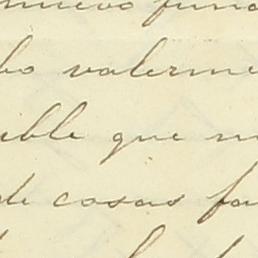 nuevo fun
bo valerme
ible que m
de cosas fa